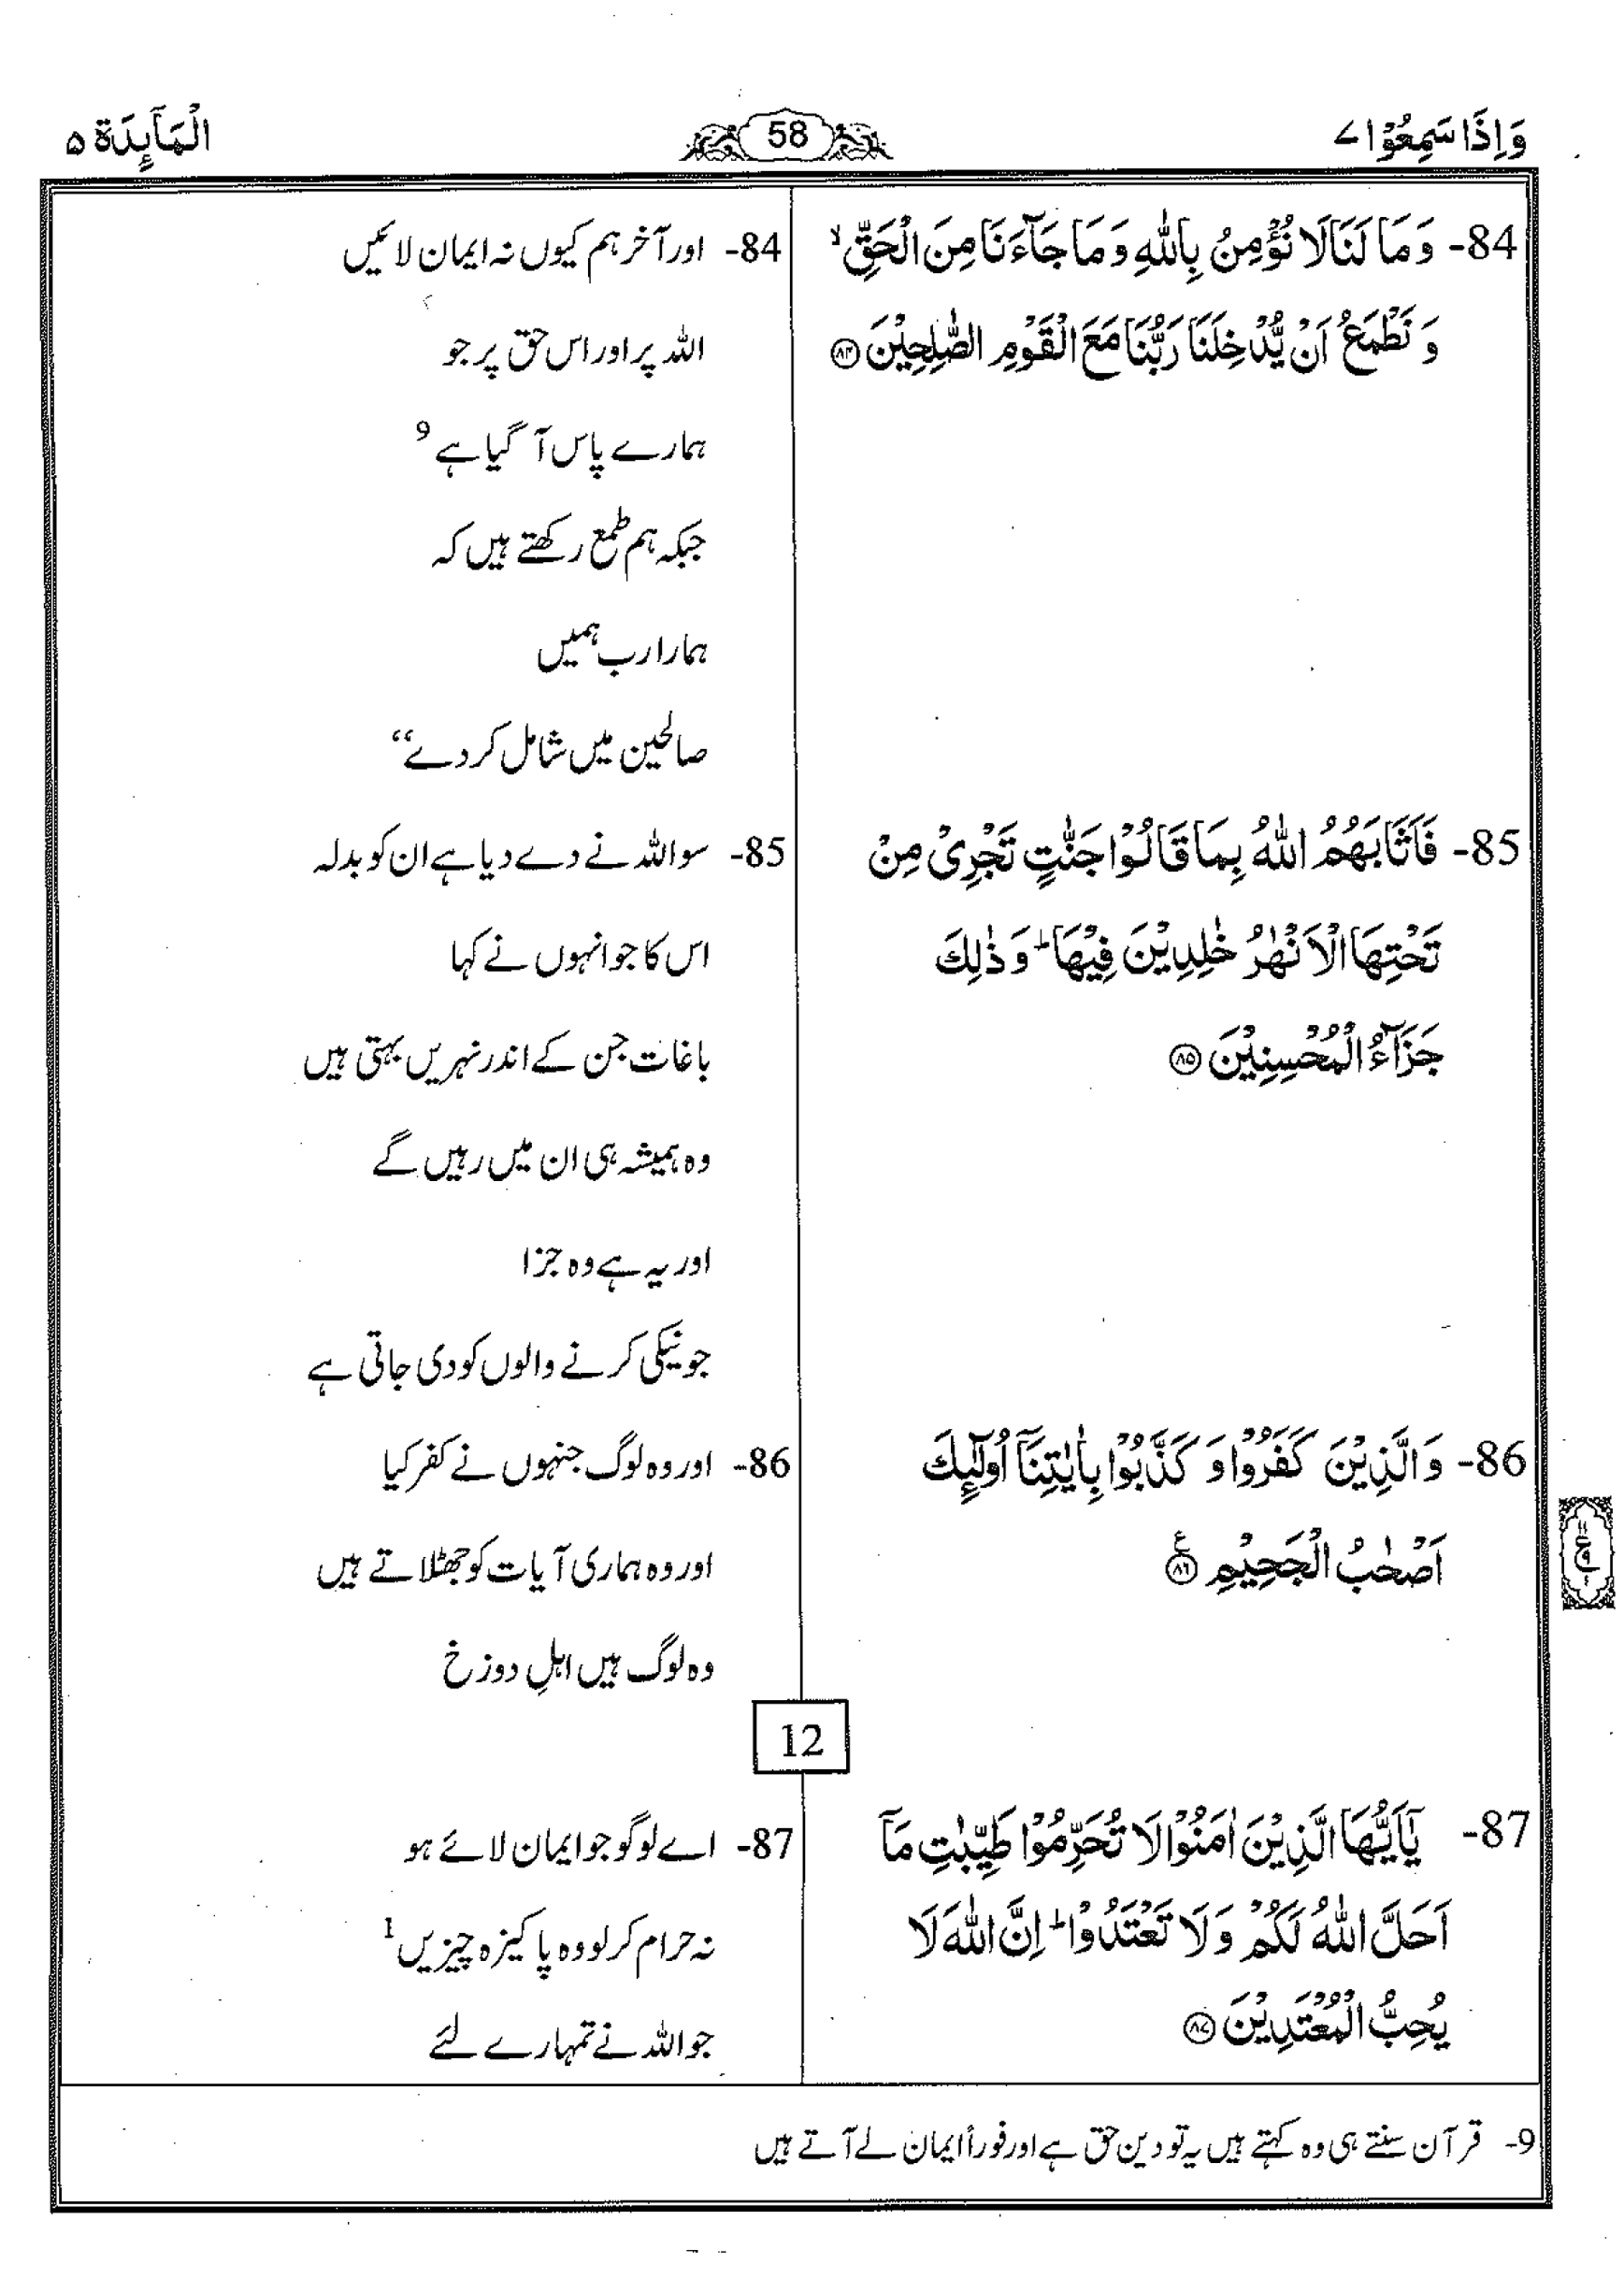 وَاِذَا سَمِعُوْا ۷
58
الْمَآىِٕدَة ۵
84- وَ مَا لَنَا لَا نُؤْمِنُ بِاللّٰهِ وَ مَا جَآءَنَا مِنَ الْحَقِّ ۙ
وَ نَطْمَعُ اَنْ یُّدْخِلَنَا رَبُّنَا مَعَ الْقَوْمِ الصّٰلِحِیْنَ ﴿۸۴﴾
84- اور آخر ہم کیوں نہ ایمان لائیں
اللہ پر اور اس حق پر جو
ہمارے پاس آ گیا ہے 9
جبکہ ہم طمع رکھتے ہیں کہ
ہمارا رب ہمیں
صالحین میں شامل کر دے‘‘
85- فَاَثَابَهُمُ اللّٰهُ بِمَا قَالُوْا جَنّٰتٍ تَجْرِیْ مِنْ
تَحْتِهَا الْاَنْهٰرُ خٰلِدِیْنَ فِیْهَا ؕ وَ ذٰلِكَ
جَزَآءُ الْمُحْسِنِیْنَ ﴿۸۵﴾
85- سو اللہ نے دے دیا ہے ان کو بدلہ
اس کا جو انہوں نے کہا
باغات جن کے اندر نہریں بہتی ہیں
وہ ہمیشہ ہی ان میں رہیں گے
اور یہ ہے وہ جزا
جو نیکی کرنے والوں کو دی جاتی ہے
86- وَ الَّذِیْنَ كَفَرُوْا وَ كَذَّبُوْا بِاٰیٰتِنَاۤ اُولٰٓىِٕكَ
اَصْحٰبُ الْجَحِیْمِ ﴿۸۶﴾ ع
86- اور وہ لوگ جنہوں نے کفر کیا
اور وہ ہماری آیات کو جھٹلاتے ہیں
وہ لوگ ہیں اہلِ دوزخ
12
87- یٰۤاَیُّهَا الَّذِیْنَ اٰمَنُوْا لَا تُحَرِّمُوْا طَیِّبٰتِ مَاۤ
اَحَلَّ اللّٰهُ لَكُمْ وَ لَا تَعْتَدُوْا ؕ اِنَّ اللّٰهَ لَا
یُحِبُّ الْمُعْتَدِیْنَ ﴿۸۷﴾
87- اے لوگو جو ایمان لائے ہو
نہ حرام کر لو وہ پاکیزہ چیزیں 1
جو اللہ نے تمہارے لئے
9- قرآن سنتے ہی وہ کہتے ہیں یہ تو دین حق ہے اور فوراً ایمان لے آتے ہیں